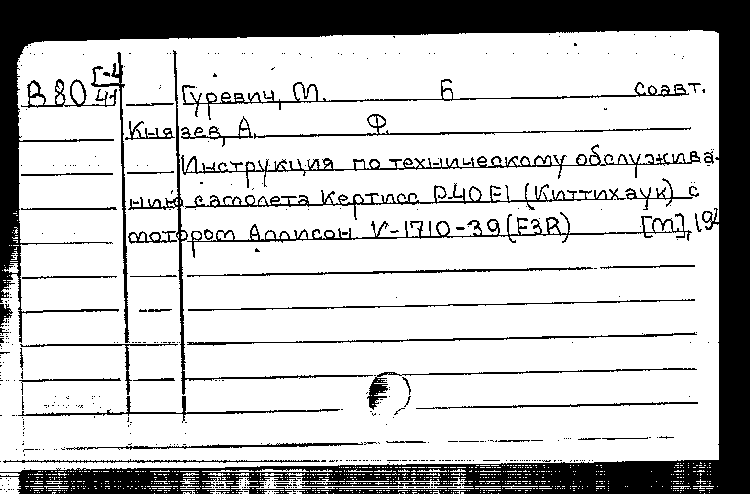 В 80 Г-4/41 Гуревич, М. Б соавт.
Князев, А. Ф.
Инструкция по техническому обслужива-
нию самолета Кертисс Р-40 Е1 (Киттихаук) с
мотором Аллисон V-1710-39 (F3R) [М], 19